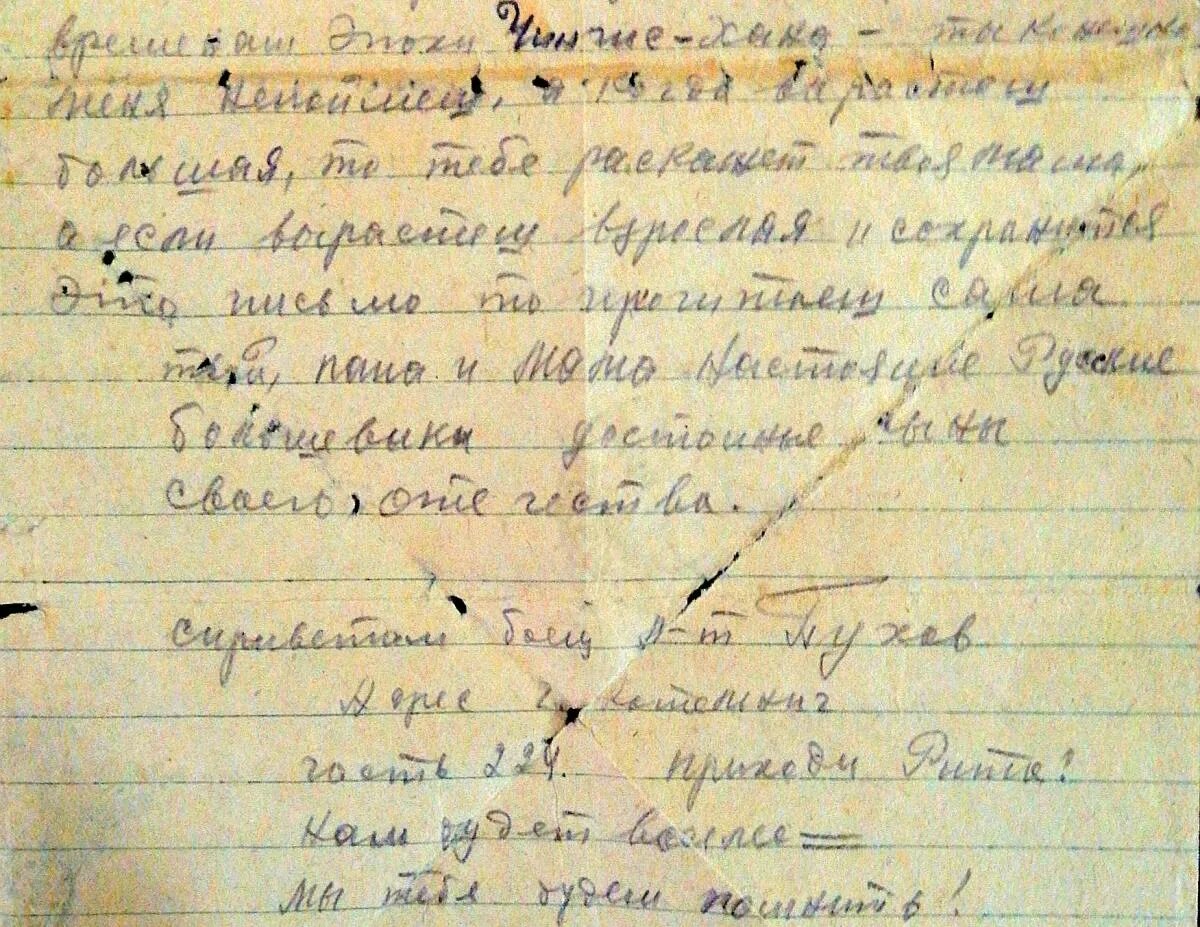 временам Эпохи Чингис-Хана - ты конешно
меня непоймеш, а когда вырастеш
большая, то тебе раскажет твоя мама,
а если вырастеш взрослая и сохранится
Это письмо то прочитаеш сама
твои, папа и Мама Настоящие Русские
большевики достойные сыны
своего, отечества.
сприветом боец л-т Пухов
Адрес г. Котельнич
часть 224. приходи Рита!
Нам будет веселее =
мы тебя будем помнить!